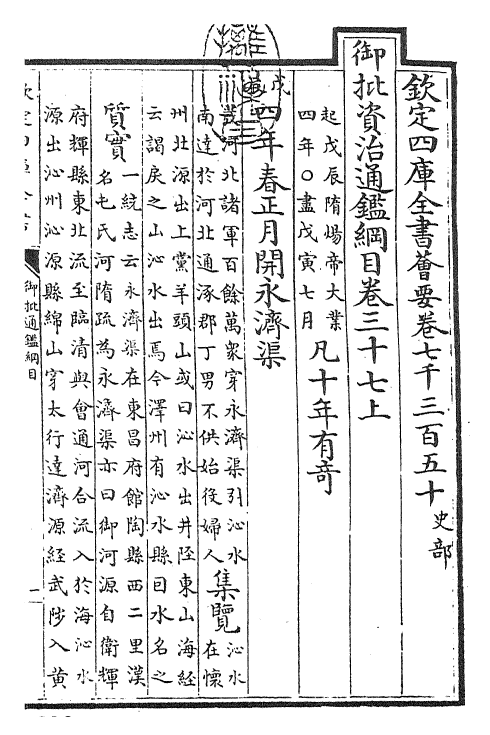 欽定四庫全書薈要卷七千三百五十史部
御批資治通鑑綱目卷三十七上
起戊辰隋煬帝大業
四年〇盡戊寅七月
凡十年有奇
戊
四年春正月開永濟渠
河北諸軍百餘萬衆穿永濟渠引沁水
南達於河北通涿郡丁男不供始役婦人
集覽
沁水
在懷
州北源出上黨羊頭山或曰沁水出井陘東山海經
云謁戾之山沁水出焉今澤州有沁水縣因水名之
質實
一統志云永濟渠在東昌府館陶縣西二里漢
名屯氏河隋疏為永濟渠亦曰御河源自衛輝
府輝縣東北流至臨清與會通河合流入於海沁水
源出沁州沁源縣綿山穿太行達濟源經武陟入黃
御批通鑑綱目
一